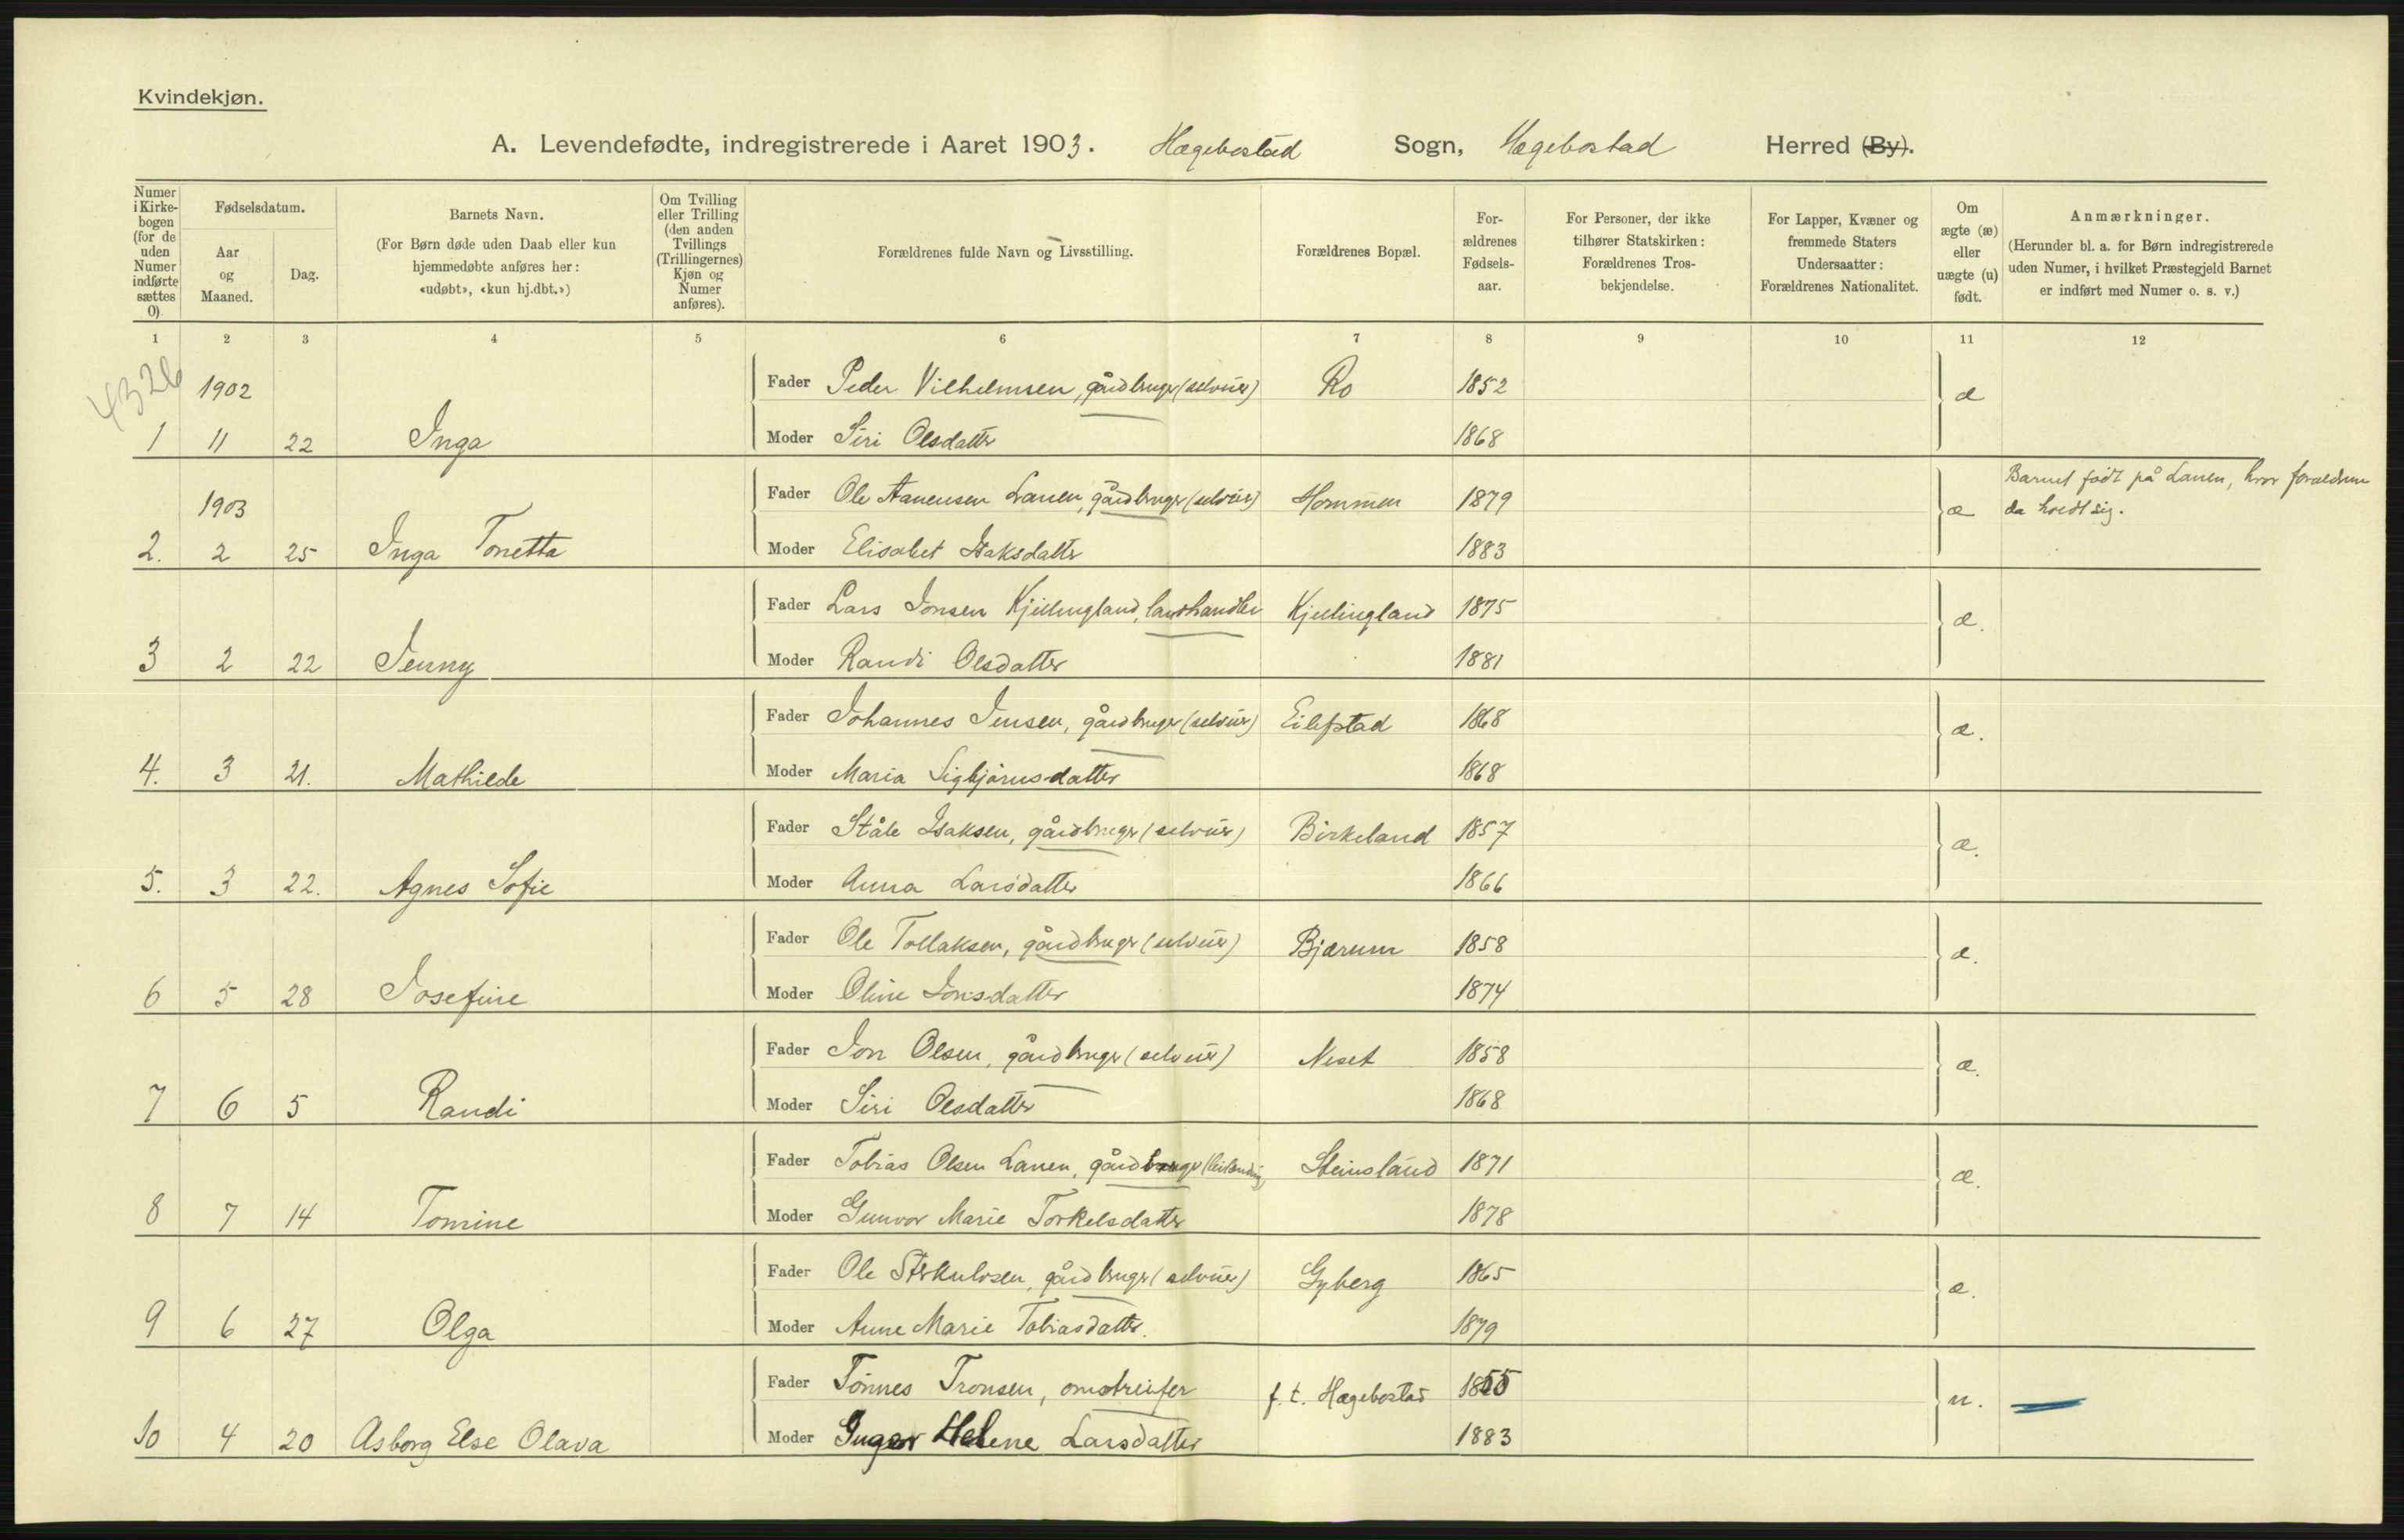 Kvindekjøn.
A. Levendefødte, indregistrerede i Aaret 1903. Hægebostad Sogn, Hægebostad Herred (By).
Numer i Kirkebogen (for de uden Numer indførte sættes 0)
Fødselsdatum.
Aar og Maaned.
Dag.
Barnets Navn.
(For Børn døde uden Daab eller kun hjemmedøbte anføres her: «udøbt», «kun hj.dbt.»)
Om Tvilling eller Trilling (den anden Tvillings (Trillingernes) Kjøn og Numer anføres).
Forældrenes fulde Navn og Livsstilling.
Forældrenes Bopæl.
Forældrenes Fødselsaar.
For Personer, der ikke tilhører Statskirken: Forældrenes Trosbekjendelse.
For Lapper, Kvæner og fremmede Staters Undersaatter: Forældrenes Nationalitet.
Om ægte (æ) eller uægte (u) født.
Anmærkninger.
(Herunder bl. a. for Børn indregistrerede uden Numer, i hvilket Præstegjeld Barnet er indført med Numer o. s. v.)
1 2 3 4 5 6 7 8 9 10 11 12
4326
1902 Fader Peder Vilhelmsen, gårdbruger (selveier) Ro 1852 æ
1 11 22 Inga Moder Siri Olsdatter 1868
Barnet født på Lauen, hvor forældrene
1903 Fader Ole Aanensen Lauen, gårdbruger (selveier) Hommen 1879 æ da hvedt sig.
2. 2 25 Inga Tonetta Moder Elisabet Isaksdatter 1883
Fader Lars Jonsen Kjellingland, landhandler Kjellingland 1875 æ.
3 2 22 Jenny Moder Randi Olsdatter 1881
Fader Johannes Jensen, gårdbruger (selveier) Eilefstad 1868 æ.
4. 3 21. Mathilde Moder Maria Sigbjørnsdatter 1868
Fader Ståle Isaksen, gårdbruger (selveier) Birkeland 1857 æ.
5. 3 22. Agnes Sofie Moder Anna Larsdatter 1866
Fader Ole Tollaksen, gårdbruger (selveier) Bjærum 1858 æ.
6 5 28 Josefine Moder Oline Jonsdatter 1874
Fader Jon Olsen, gårdbruger (selveier) Neset 1858 æ.
7 6 5 Randi Moder Siri Olsdatter 1868
Fader Tobias Olsen Lauen, gårdbruger (leilending) Steinsland 1871 æ.
8 7 14 Tomine Moder Gunvor Marie Torkelsdatter 1878
Fader Ole Sterkulvsen, gårdbruger (selveier) Gyberg 1865 æ.
9 6 27 Olga Moder Anne Marie Tobiasdatter. 1879
Fader Tønnes Tronsen, omstreifer f. t. Hægebostad 1855 u.
10 4 20 Asborg Else Olava Moder Inger Helene Larsdatter 1883